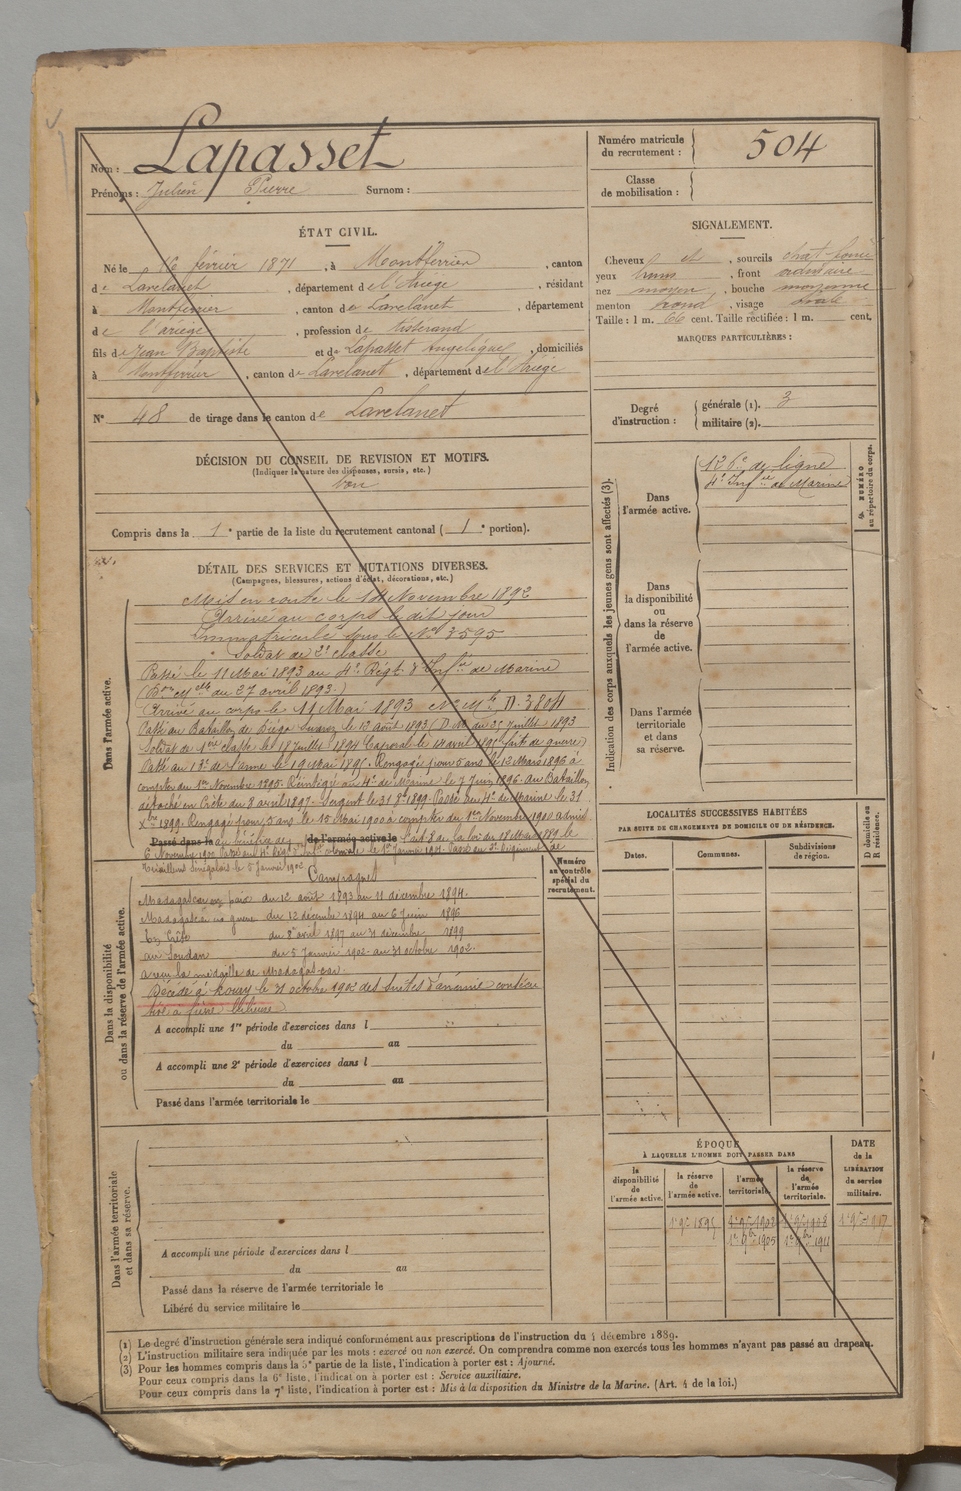 Nom : Lapasset
Prénoms : Julien Pierre Surnom :
Numéro matricule
du recrutement : 504
Classe
de mobilisation :
ÉTAT CIVIL.
Né le 16 février 1871, à Montferrier, canton
de Lavelanet, département de l'Ariège, résidant
à Montferrier, canton de Lavelanet, département
de l'ariège, profession de tisserand
fils de Jean Baptiste et de Lapasset Angélique, domiciliés
à Montferrier, canton de Lavelanet, département de l'Ariège
N° 48 de tirage dans le canton de Lavelanet
SIGNALEMENT.
Cheveux et, sourcils chat-foncé
yeux bruns, front ordinaire
nez moyen, bouche moyenne
menton rond, visage ovale
Taille : 1 m. 66 cent. Taille rectifiée : 1 m. cent.
MARQUES PARTICULIÈRES :
Degré
d'instruction :
générale (1). 3
militaire (2).
DÉCISION DU CONSEIL DE REVISION ET MOTIFS.
(Indiquer la nature des dispenses, sursis, etc.)
bon
Compris dans la 1e partie de la liste du recrutement cantonal (1e portion).
DÉTAIL DES SERVICES ET MUTATIONS DIVERSES.
(Campagnes, blessures, actions d'éclat, décorations, etc.)
Dans l'armée active.
Mis en route le 14 Novembre 1892
Arrivé au corps le dit jour
Immatriculé sous le N° 3595
Soldat de 2e classe
Passé le 11 Mai 1893 au 4e Régt d'Infie de Marine
du 27 avril 1893)
Arrivé au corps le 11 Mai 1893 No Mle D. 3804
Passé au Bataillon de Diégo Suarez le 12 août 1893 (D.M. du 25 Juillet 1893
Soldat de 1ere classe le 18 Juillet 1894 Caporal le 14 avril 1895 (fait de guerre)
Passé au 13e de l'arme le 19 Mai 1895. Rengagé pour 5 ans le 12 Mars 1896 à
compter du 1er Novembre 1895. Réintégré au 4e de Marine le 7 Juin 1896. Au Bataillon
détaché en Crète du 8 avril 1897. Sergent le 31 8e 1899. Passé au 4e de Marine le 31
Xbre 1899. Rengagé pour 5 ans le 15 Mai 1900 à compter du 1er Novembre 1900 admis
Passé dans le au bénéfice de l'armée active le l'art 8 de la loi du 18 Mars 1889 le
6 Novembre 1900 Passé au 4e Régt Infie coloniale le 1er Janvier 1901. Passé au 2e Régiment de
Tirailleurs Sénégalais le 5 Janvier 1902
Dans la disponibilité
ou dans la réserve de l'armée active.
Campagnes
Madagascar en paix du 12 août 1893 au 11 décembre 1894.
Madagascar en guerre du 12 décembre 1894 au 6 Juin 1896
En Crète du 8 avril 1897 au 31 décembre 1899
au Soudan du 5 Janvier 1902 au 31 octobre 1902.
a reçu la médaille de Madagascar.
Décédé à Koury le 31 octobre 1902 des suites d'anémie consécu
tive à fièvre bilieuse
A accompli une 1re période d'exercices dans l
du au
A accompli une 2e période d'exercices dans l
du au
Passé dans l'armée territoriale le
Numéro
au contrôle
spécial du
recrutement.
Dans l'armée territoriale
et dans sa réserve.
A accompli une période d'exercices dans l
du au
Passé dans la réserve de l'armée territoriale le
Libéré du service militaire le
Indication des corps auxquels les jeunes gens sont affectés (3).
Dans
l'armée active.
126e de ligne
4e Infie de Marine
NUMÉRO
au répertoire du corps.
Dans
la disponibilité
ou
dans la réserve
de
l'armée active.
Dans l'armée
territoriale
et dans
sa réserve.
LOCALITÉS SUCCESSIVES HABITÉES
PAR SUITE DE CHANGEMENTS DE DOMICILE OU DE RÉSIDENCE.
Dates.
Communes.
Subdivisions
de région.
D domicile ou
R résidence.
ÉPOQUE
À LAQUELLE L'HOMME DOIT PASSER DANS
DATE
de la
LIBÉRATION
du service
militaire.
la
disponibilité
de
l'armée active.
la réserve
de
l'armée active.
l'armée
territoriale.
la réserve
de
l'armée
territoriale.
1er 9bre 1895
1er 9bre 1902
1er 9bre 1908
1er 9bre 1917
1er 9bre 1905
1er 9bre 1911
(1) Le degré d'instruction générale sera indiqué conformément aux prescriptions de l'instruction du 4 décembre 1889.
(2) L'instruction militaire sera indiquée par les mots : exercé ou non exercé. On comprendra comme non exercés tous les hommes n'ayant pas passé au drapeau.
(3) Pour les hommes compris dans la 5e partie de la liste, l'indication à porter est : Ajourné.
Pour ceux compris dans la 6e liste, l'indication à porter est : Service auxiliaire.
Pour ceux compris dans la 7e liste, l'indication à porter est : Mis à la disposition du Ministre de la Marine. (Art. 4 de la loi.)